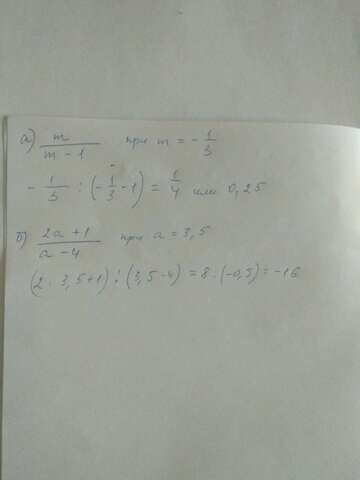 а) m / (m - 1) при m = - 1/3
- 1/3 : (- 1/3 - 1) = 1/4 или 0,25
б) (2a + 1) / (a - 4) при a = 3,5
(2 · 3,5 + 1) : (3,5 - 4) = 8 : (-0,5) = -16